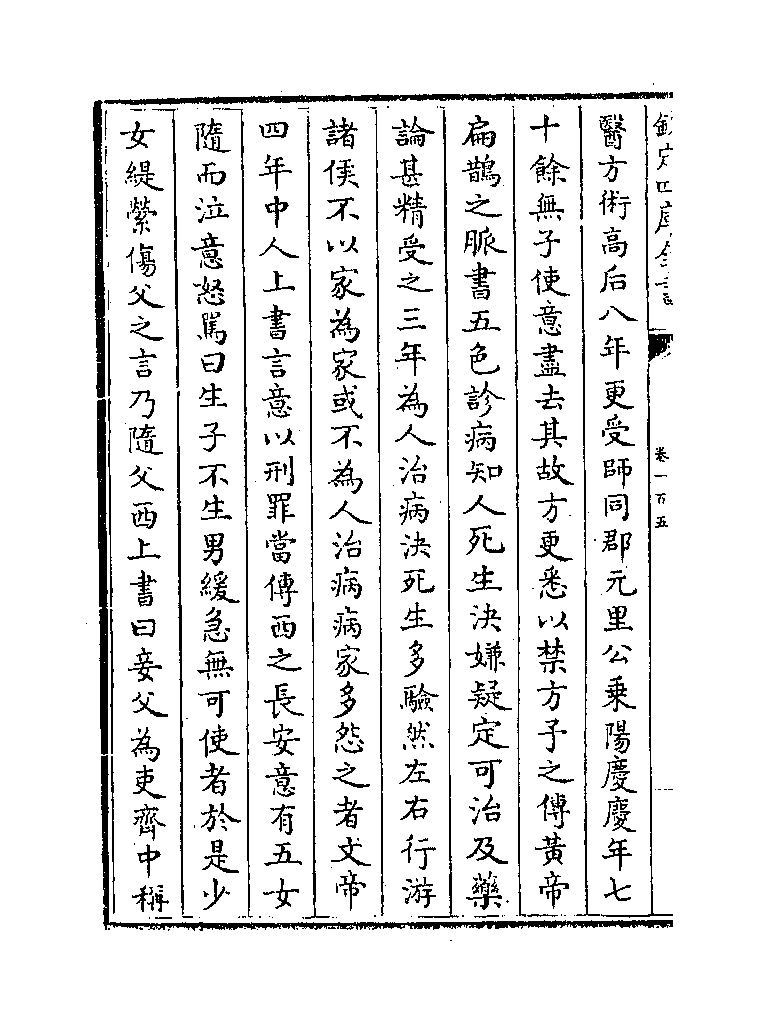 欽定四庫全書
卷一百五
醫方術高后八年更受師同郡元里公乗陽慶慶年七
十餘無子使意盡去其故方更悉以禁方予之傳黃帝
扁鵲之脈書五色診病知人死生決嫌疑定可治及藥
論甚精受之三年為人治病決死生多驗然左右行游
諸侯不以家為家或不為人治病病家多怨之者文帝
四年中人上書言意以刑罪當傳西之長安意有五女
隨而泣意怒罵曰生子不生男緩急無可使者於是少
女緹縈傷父之言乃隨父西上書曰妾父為吏齊中稱